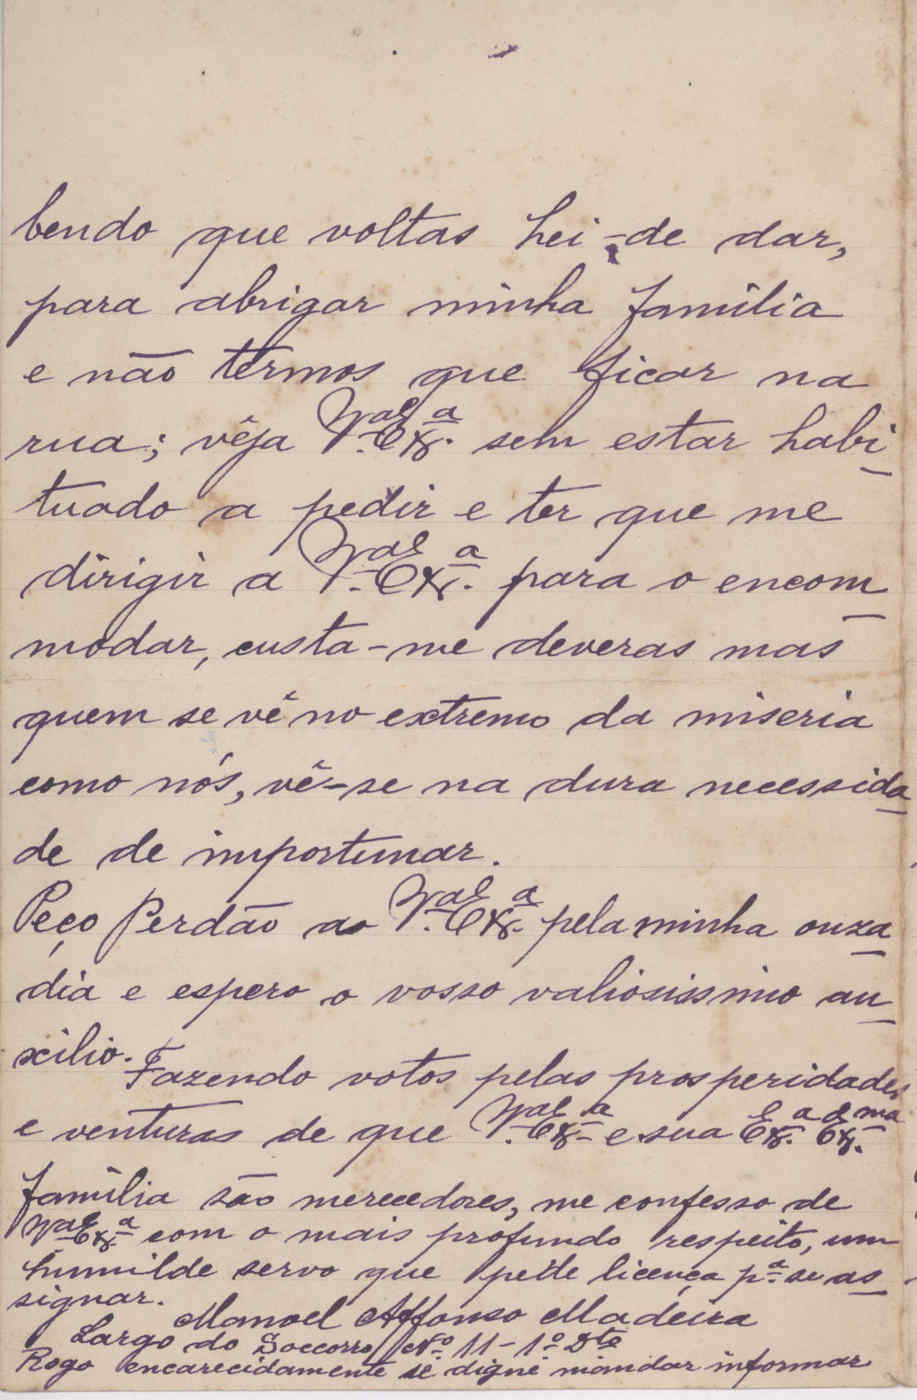 bendo que voltas hei-de dar,
para abrigar minha família
e não têrmos que ficar na
rua; vêja V.ª Ex.ª sem estar habi-
tuado a pedir e ter que me
dirigir a V.ª Ex.ª para o encom-
modar, custa-me deveras mas
quem se vê no extremo da miseria
como nós, vê-se na dura necessida-
de de importunar.
Peço Perdão ao V.ª Ex.ª pela minha ouza-
dia e espero o vosso valiosissimo au-
xilio.
Fazendo votos pelas prosperidades
e venturas de que V.ª Ex.ª e sua Ex.ª Ex.ma
família são merecedores, me confesso de
V.ª Ex.ª com o mais profundo respeito, um
humilde servo que péde licença p.ª se as-
signar.
Manoel Affonso Madeira
Largo do Soccorro, Nº 11-1º Dtº
Rogo encarecidamente se digne mandar informar